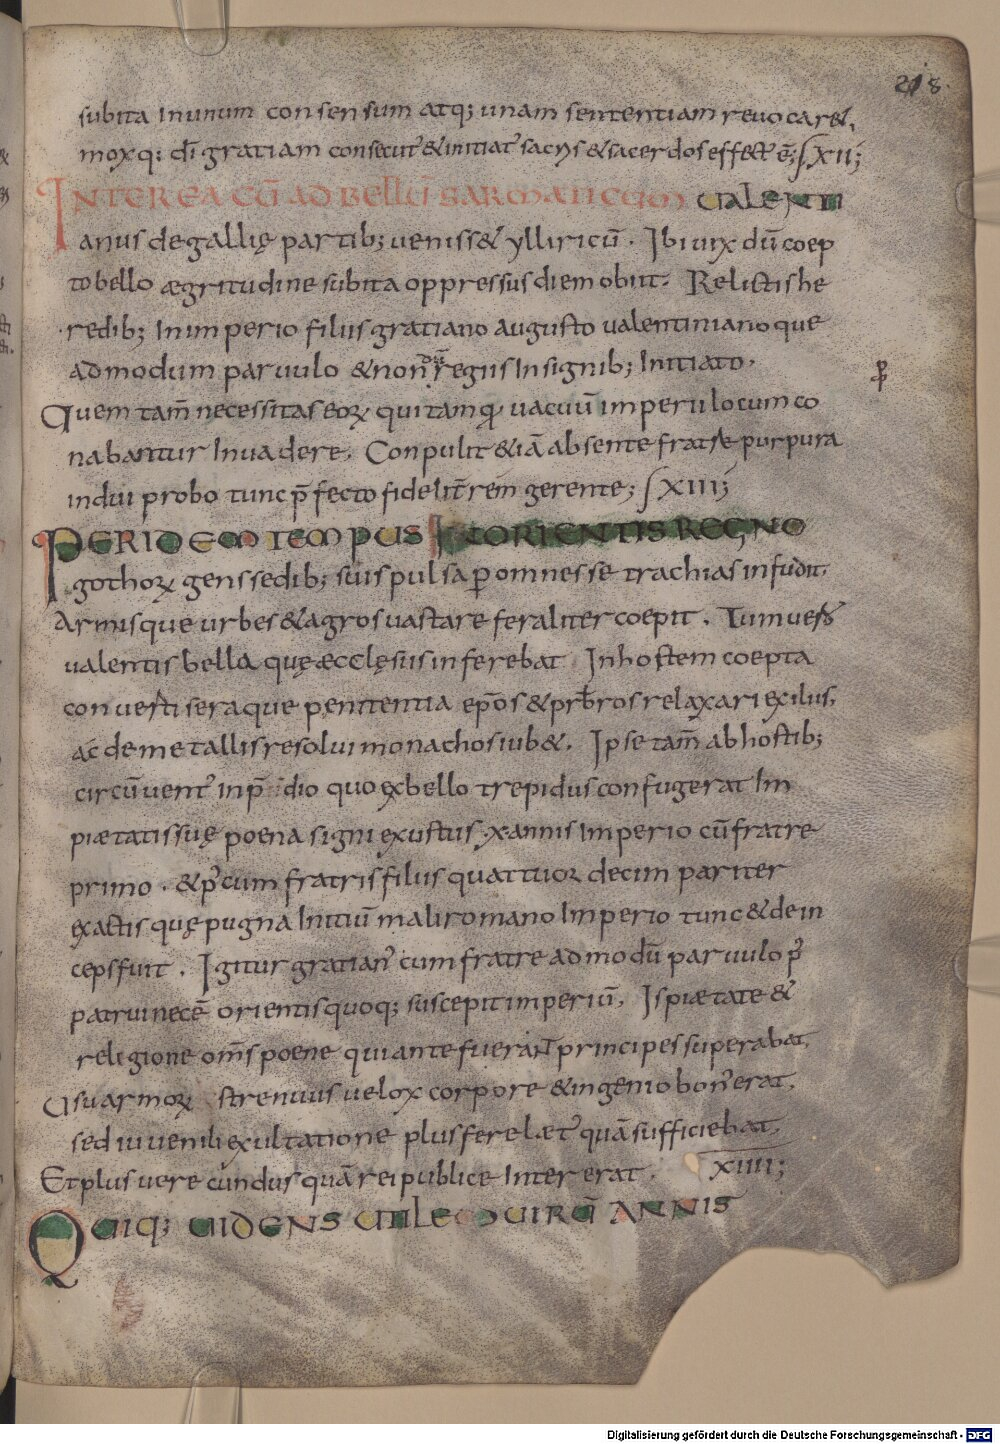 218.
subita inunum consensum atq; unam sententiam reuocar&,
moxq; di̅ gratiam consecut᾽ & initiat᾽ sacris & sacerdos effect᾽ e̅; XII;
INTEREA CŪ AD BELLŪ SARMATICUM UALENTI
anus degallię partib; ueniss& ylliricū. Ibi uix dū coep
to bello ægritudine subita oppressus diem obiit. Relictis he
redib; inimperio filius gratiano augusto ualentiniano que
admodum paruulo & non dū regiis insignib; initiato.
Quem tam̅ necessitas eoꝝ qui tamq̅ uacuū imperii locum co
nabantur inuadere. Conpulit &iā absente fratre purpura
indui probo tunc p̅fecto fidelit̅ rem gerente; XIII;
PERIDEM TEMPUS IN ORIENTIS REGNO
gothoꝝ gens sedib; suis pulsa ꝑ omnes se trachias infudit.
Armisque urbes & agros uastare feraliter coepit. Tum uero
ualentis bella quę æcclęsiis inferebat. In hostem coepta
conuerti seraque penitentia ep̅os & prb̅ros relaxari exiliis,
ac de metallis resolui monachos iub&. Ipse tam̅ ab hostib;
circūuent᾽ in p̅dio quo exbello trepidus confugerat im
piætatis suę poena igni exustus. x. annis imperio cū fratre
primo. & p᾽ cum fratris filiis quattuor decim pariter
exactis quę pugna initiū mali romano imperio tunc & dein
ceps fuit. Igitur gratian᾽ cum fratre admodū paruulo p᾽
patrui necē orientis quoq; suscepit imperiū. Is piætate &
religione om̅s poene qui ante fuerant principes superabat,
Usu armoꝝ strenuus uelox corpore & ingenio bon᾽ erat,
sed iuuenili exultatione plus fere læt᾽ quā sufficiebat,
Et plus uerecundus quā rei publice intererat. XIIII;
QUIQ; UIDENS UTILEM UIRŪ ANNIS
Digitalisierung gefördert durch die Deutsche Forschungsgemeinschaft - DFG